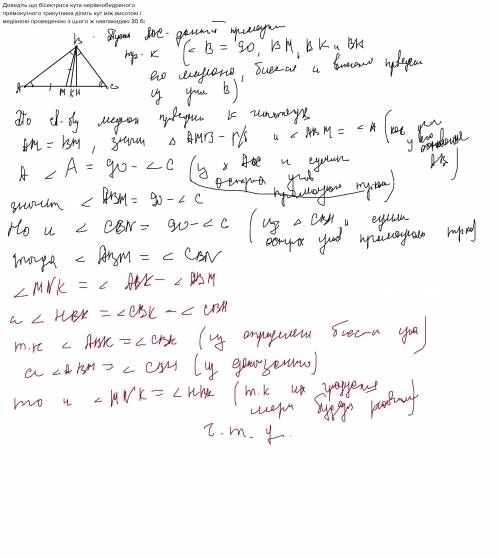 Доведіть що бісектриса кута нерівнобедреного
прямокутного трикутника ділить кут між висотою і
медіаною проведеною з цього ж навпіл
B
A M K H C
Пусть ABC - данный прямоугол
тр. к (< B = 90, BM, BK и BH
его медиана, биссек и высота провед
из угла B)
По св-ву медиан проведен к гипотенузе
AM = BM, значит △ AMB - р/б и < ABM = < A (как углы
у его основания
AB)
А < A = 90 - < C (из △ ABC и суммы
острых углов
прямоугол треуг)
значит < ABM = 90 - < C
Но и < CBH = 90 - < C (из △ CBH и сумм
острых углов прямоугольно треуг)
тогда < ABM = < CBH
< MBK = < ABK - < ABM
а < HBK = < CBK - < CBH
т.к < ABK = < CBK (из определен биссек угла)
а < ABM = < CBH (из доказанного)
то и < MBK = < HBK (т.к их градусная
мера будет равной)
Ч. т. д.